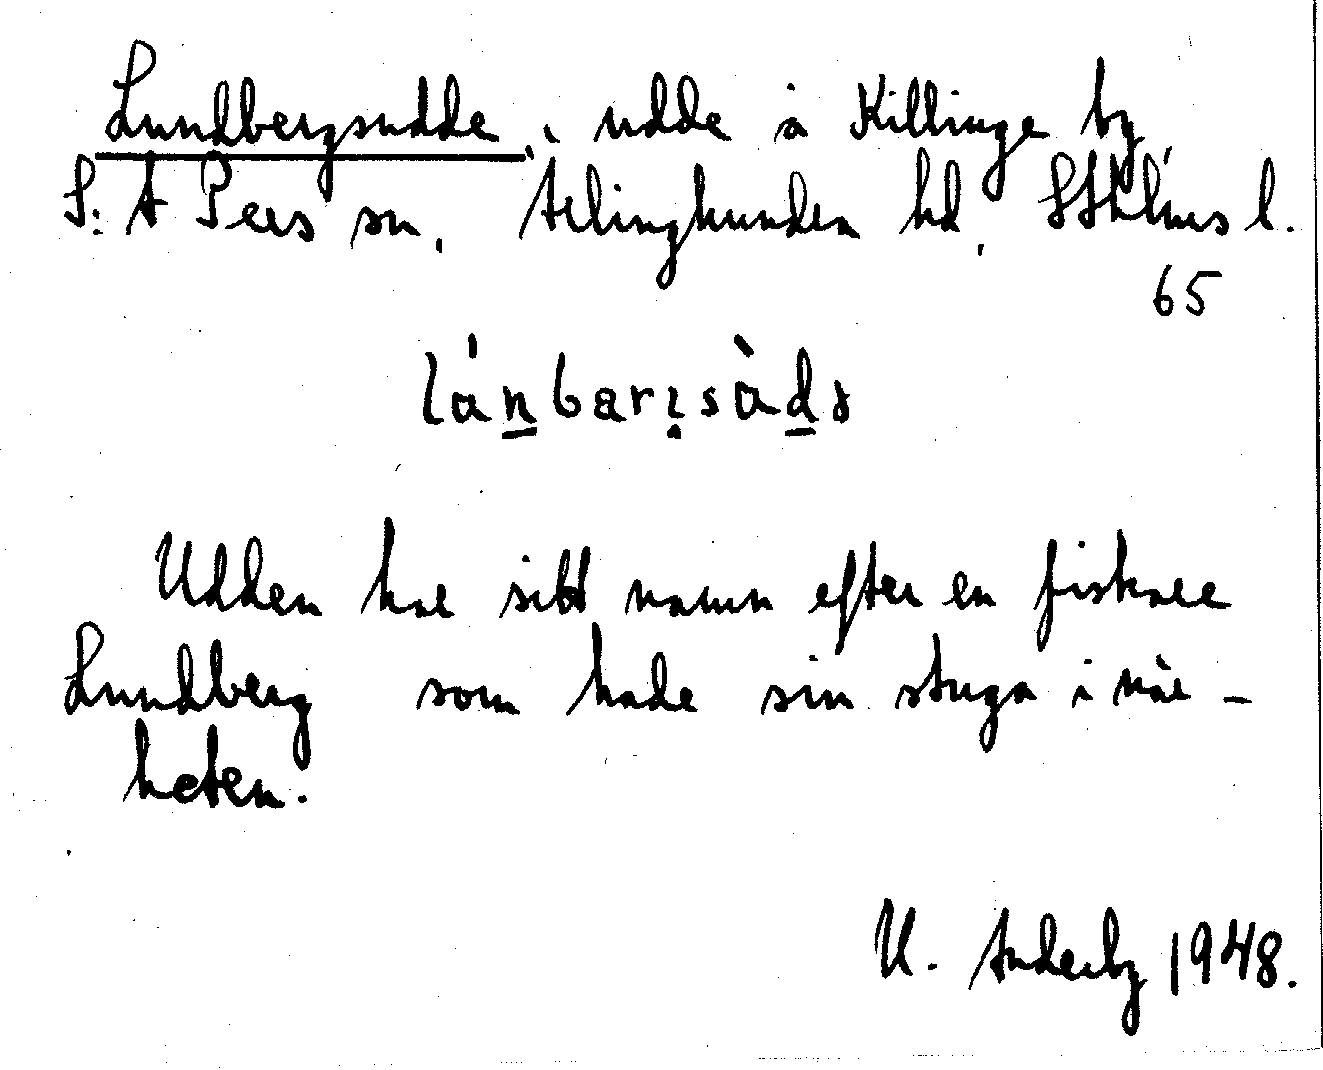 Lundbergsudde, udde å Killinge by,
S:t Pers sn, Ärlinghundra hd, Sthlms l.
65
Udden har sitt namn efter en fiskare
Lundberg som hade sin stuga i när-
heten.
U. Anderby 1948.